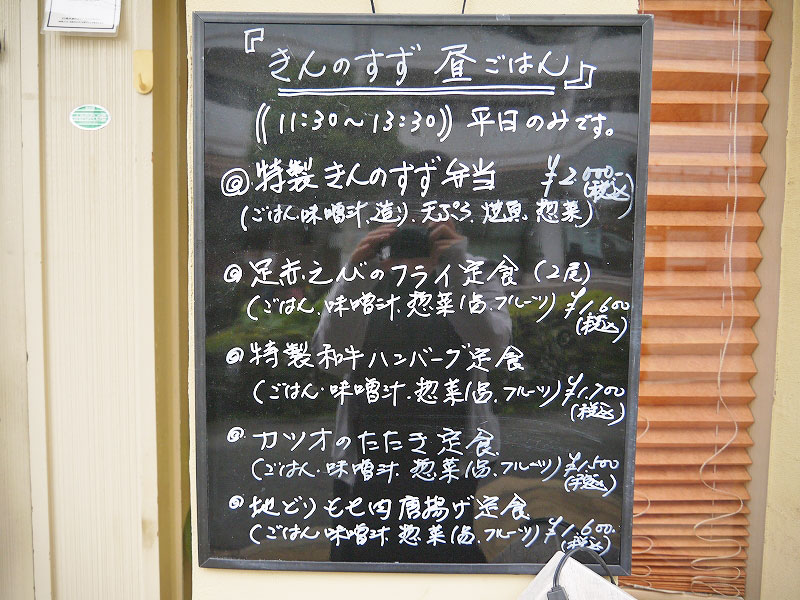 『きんのすず 昼ごはん』
((11:30〜13:30)) 平日のみです。
◎特製きんのすず弁当 ¥2,000-(税込)
(ごはん.味噌汁.造り.天ぷら.焼魚.惣菜)
◎足赤えびのフライ定食(2尾)
(ごはん.味噌汁.惣菜1品.フルーツ)¥1,600(税込)
◎特製和牛ハンバーグ定食
(ごはん.味噌汁.惣菜1品.フルーツ)¥1,700(税込)
◎カツオのたたき定食
(ごはん.味噌汁.惣菜1品.フルーツ)¥1,500(税込)
◎地どりもも肉唐揚げ定食
(ごはん.味噌汁.惣菜1品.フルーツ)¥1,600.(税込)